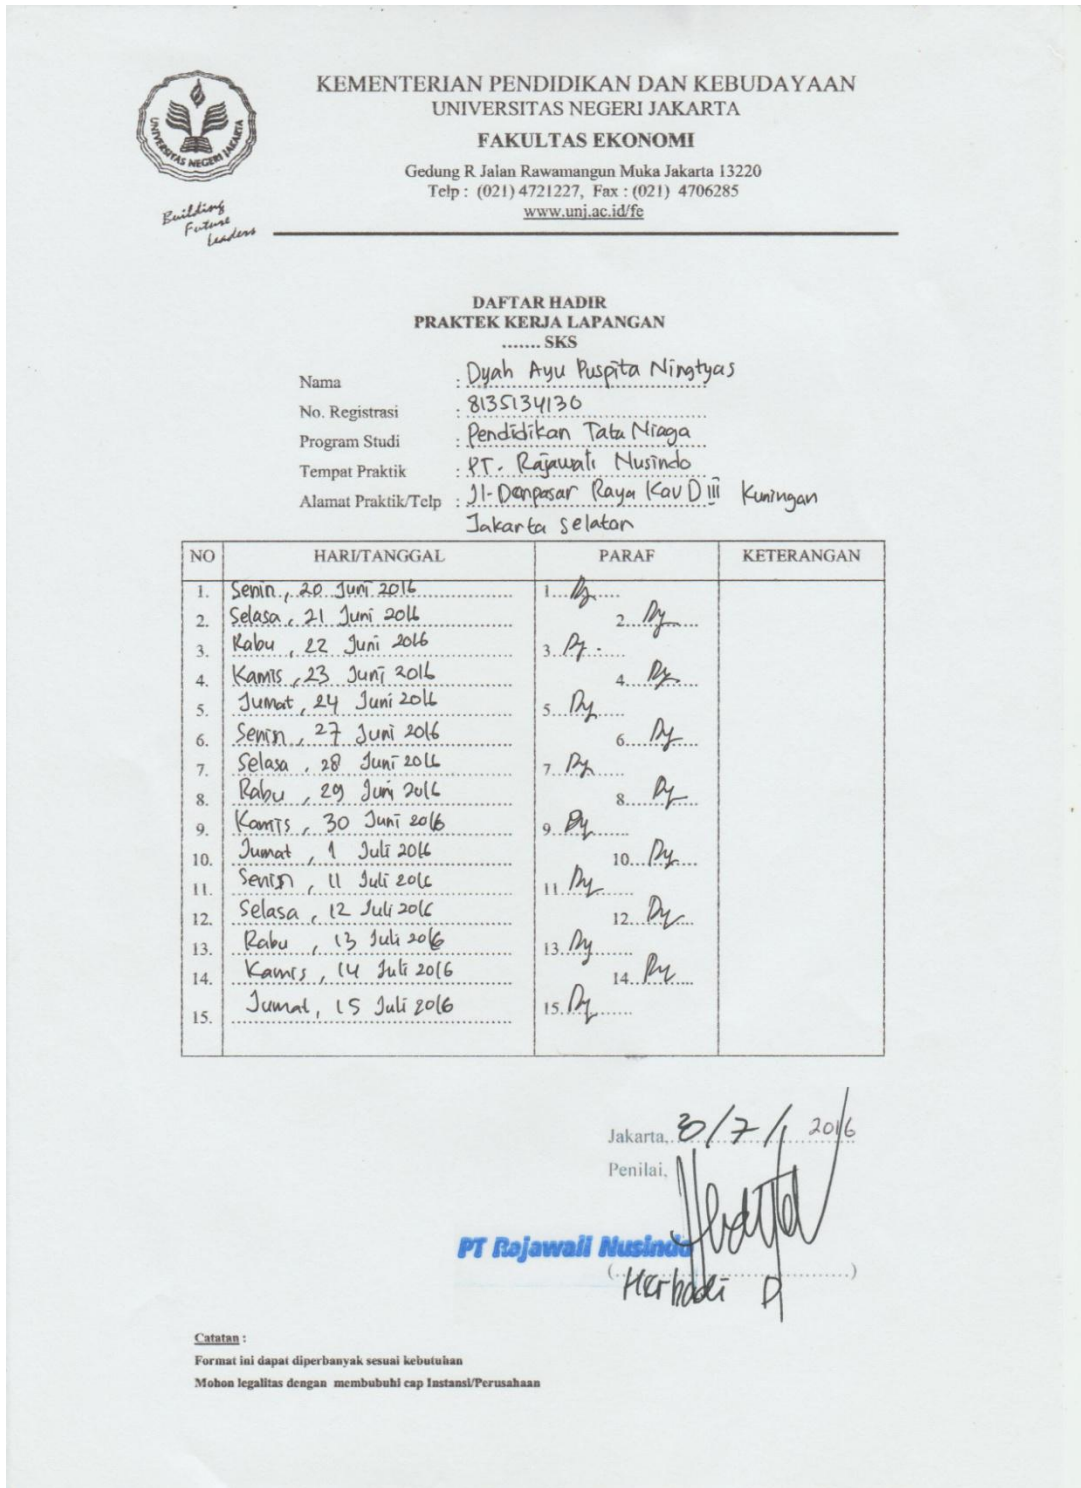 KEMENTERIAN PENDIDIKAN DAN KEBUDAYAAN
UNIVERSITAS NEGERI JAKARTA
FAKULTAS EKONOMI
Gedung R Jalan Rawamangun Muka Jakarta 13220
Telp : (021) 4721227, Fax : (021) 4706285
www.unj.ac.id/fe
UNIVERSITAS NEGERI JAKARTA
Building
Future
Leaders
DAFTAR HADIR
PRAKTEK KERJA LAPANGAN
....... SKS
Nama : Dyah Ayu Puspita Ningtyas
No. Registrasi : 8135134130
Program Studi : Pendidikan Tata Niaga
Tempat Praktik : PT. Rajawali Nusindo
Alamat Praktik/Telp : Jl. Denpasar Raya Kav D III Kuningan
Jakarta Selatan
NO HARI/TANGGAL PARAF KETERANGAN
1. Senin, 20 Juni 2016 1.
2. Selasa, 21 Juni 2016 2.
3. Rabu, 22 Juni 2016 3.
4. Kamis, 23 Juni 2016 4.
5. Jumat, 24 Juni 2016 5.
6. Senin, 27 Juni 2016 6.
7. Selasa, 28 Juni 2016 7.
8. Rabu, 29 Juni 2016 8.
9. Kamis, 30 Juni 2016 9.
10. Jumat, 1 Juli 2016 10.
11. Senin, 11 Juli 2016 11.
12. Selasa, 12 Juli 2016 12.
13. Rabu, 13 Juli 2016 13.
14. Kamis, 14 Juli 2016 14.
15. Jumat, 15 Juli 2016 15.
Jakarta, /7/ 2016
Penilai,
PT Rajawali Nusindo
Catatan :
Format ini dapat diperbanyak sesuai kebutuhan
Mohon legalitas dengan membubuhi cap Instansi/Perusahaan